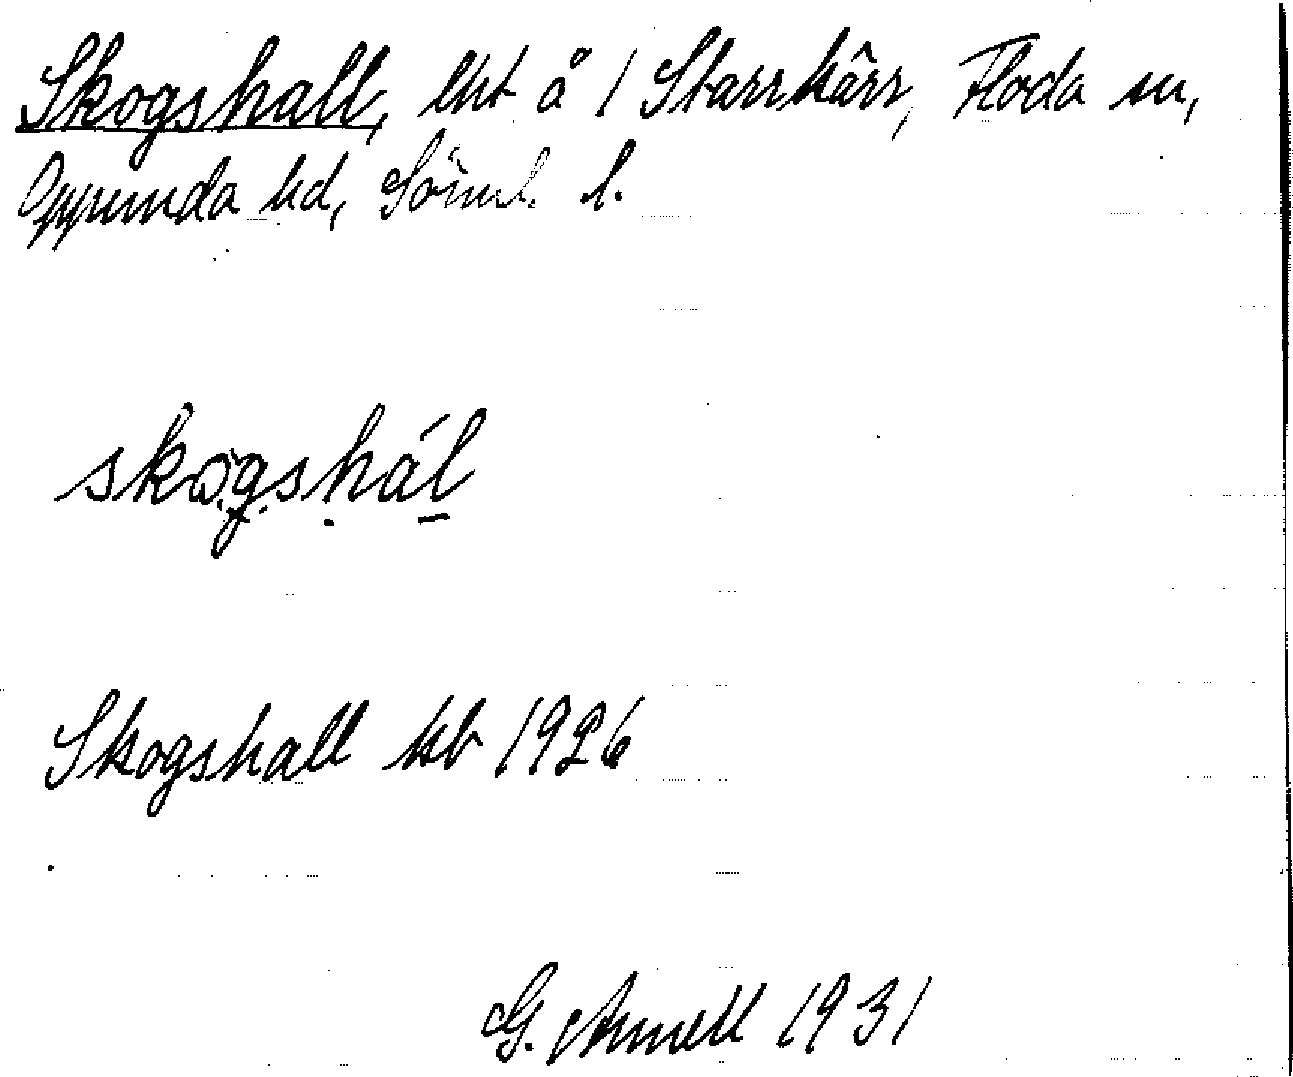 Skogshall, lht å 1 Starrkärr, Floda sn,
Oppunda hd, Söml. l.
skogshál
Skogshall kb 1926
G. Arnell 1931